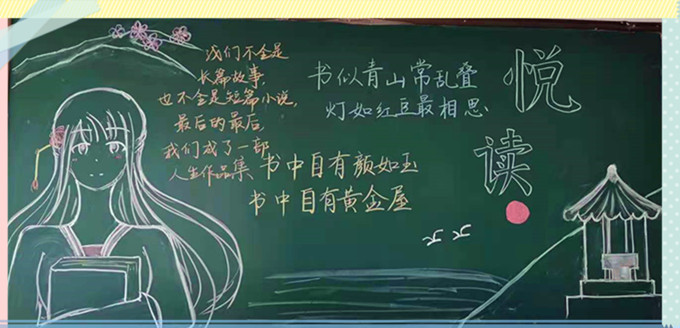 我们不全是
长篇故事,
也不全是短篇小说,
最后的最后,
我们成了一部
人生作品集
书似青山常乱叠
灯如红豆最相思
书中自有颜如玉
书中自有黄金屋
悦
读